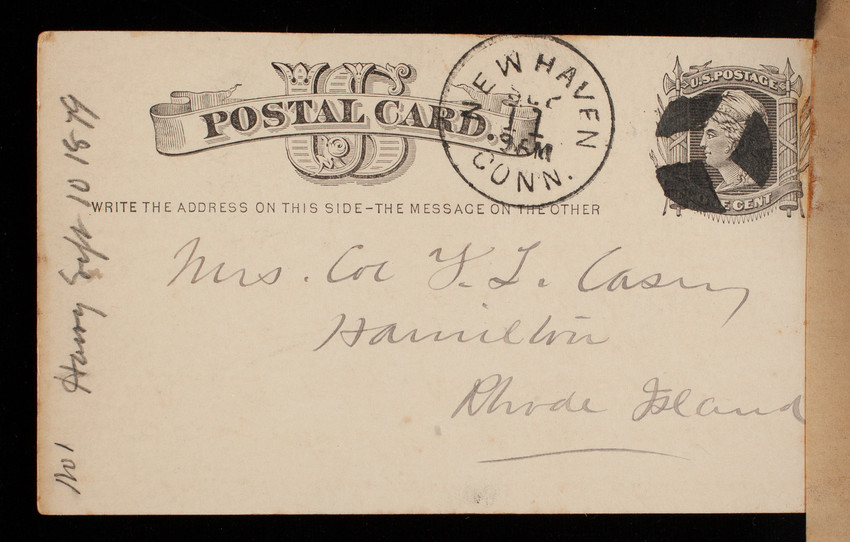 US
POSTAL CARD.
NEW HAVEN
11
5 PM
CONN.
U.S. POSTAGE
ONE CENT
WRITE THE ADDRESS ON THIS SIDE-THE MESSAGE ON THE OTHER
Mrs. Col T. L. Casey
Hamilton
Rhode Island
No 1 Harry Sept 10 1879